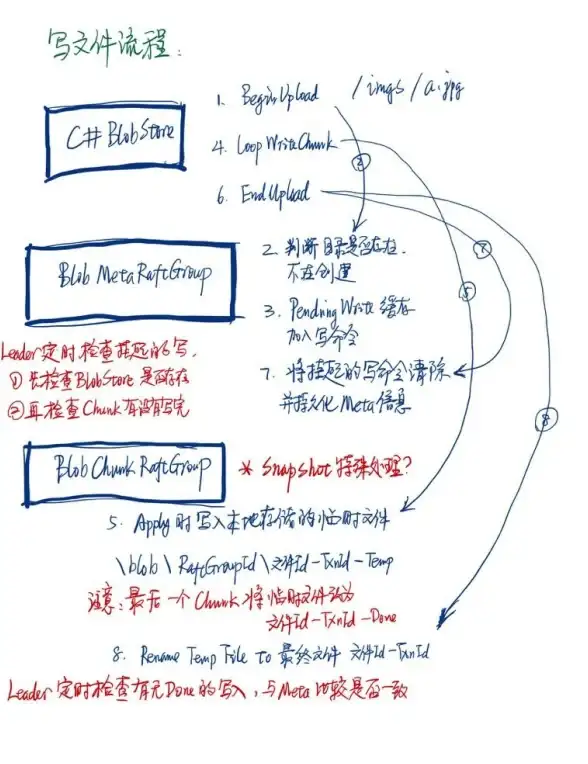 写文件流程:
1. BeginUpload /imgs/a.jpg
C# BlobStore
②
4. Loop WriteChunk
6. EndUpload
2. 判断目录是否存在,
不在创建
⑦
Blob MetaRaftGroup
⑤
3. Pending Write 缓存
加入写命令
Leader定时检查挂起的写,
① 先检查BlobStore是否存在
② 再检查Chunk有没有写完
7. 将挂起的写命令清除
并持久化Meta信息
⑧
Blob Chunk RaftGroup
* Snapshot 特殊处理?
5. Apply时写入本地存储的临时文件
\blob\RaftGroupId\文件Id-TxnId-Temp
注意: 最后一个Chunk将临时文件改为
文件Id-TxnId-Done
8. Rename Temp File to 最终文件 文件Id-TxnId
Leader定时检查有无Done的写入, 与Meta比较是否一致